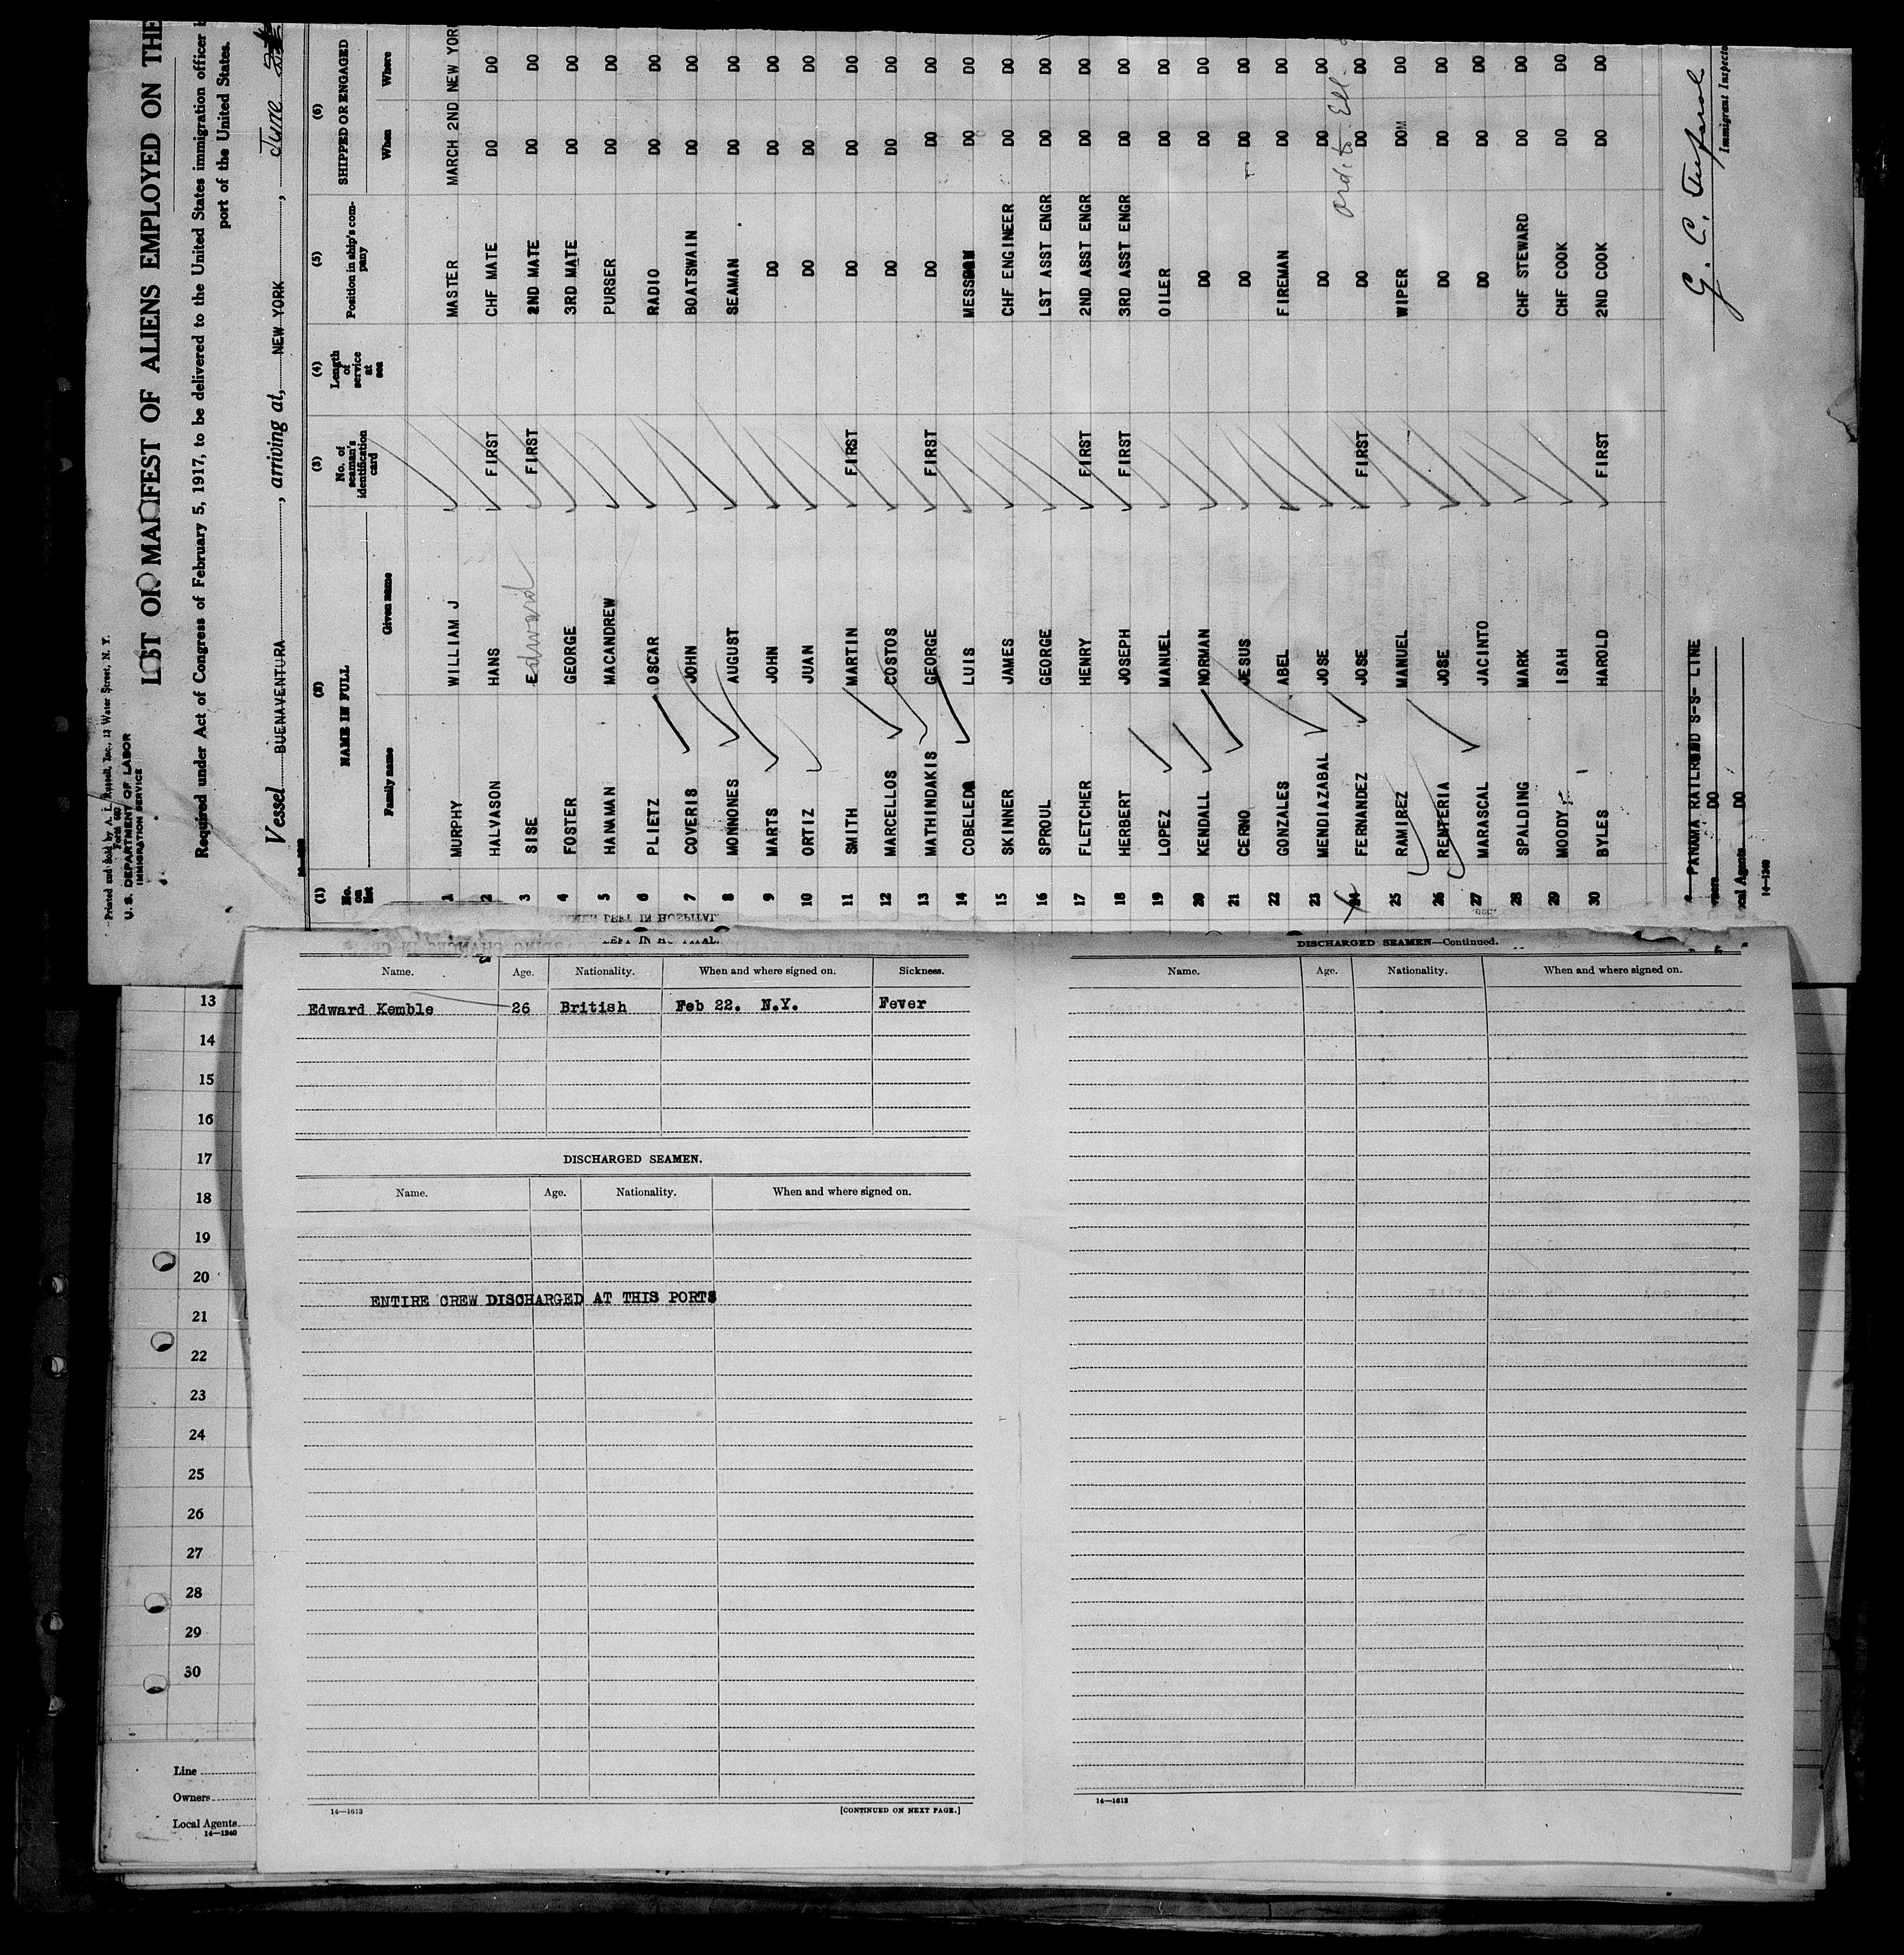 Printed and Sold by A. L. Russell, Inc., 13 Water Street, N. Y.
Form 680
U. S. DEPARTMENT OF LABOR
IMMIGRATION SERVICE
LIST OR MANIFEST OF ALIENS EMPLOYED ON THE
Required under Act of Congress of February 5, 1917, to be delivered to the United States immigration officer
port of the United States.
Vessel BUENAVENTURA, arriving at, NEW YORK, June
(1) (2) (3) (4) (5) (6)
No. on list NAME IN FULL No. of seaman's identification card Length of service at sea Position in ship's company SHIPPED OR ENGAGED
Family name Given name When Where
1 MURPHY WILLIAM J MASTER MARCH 2ND NEW YOR
2 HALVASON HANS FIRST CHF MATE DO DO
3 SISE Edward FIRST 2ND MATE DO DO
4 FOSTER GEORGE 3RD MATE DO DO
5 HANAMAN MACANDREW PURSER DO DO
6 PLIETZ OSCAR RADIO DO DO
7 COVERIS JOHN BOATSWAIN DO DO
8 MONNONES AUGUST SEAMAN DO DO
9 MARTS JOHN DO DO DO
10 ORTIZ JUAN DO DO DO
11 SMITH MARTIN FIRST DO DO DO
12 MARCELLOS COSTOS DO DO DO
13 MATHINDAKIS GEORGE FIRST DO DO DO
14 COBELEDA LUIS DO DO
15 SKINNER JAMES CHF ENGINEER DO DO
16 SPROUL GEORGE LST ASST ENGR DO DO
17 FLETCHER HENRY FIRST 2ND ASST ENGR DO DO
18 HERBERT JOSEPH FIRST 3RD ASST ENGR DO DO
19 LOPEZ MANUEL OILER DO DO
20 KENDALL NORMAN DO DO DO
21 CERNO JESUS DO DO DO
22 GONZALES ABEL FIREMAN DO DO
23 MENDIAZABAL JOSE DO DO DO
24 FERNANDEZ JOSE FIRST DO DO DO
25 RAMIREZ MANUEL WIPER DO DO
26 RENTERIA JOSE DO DO DO
27 MARASCAL JACINTO DO DO DO
28 SPALDING MARK CHF STEWARD DO DO
29 MOODY ISAH CHF COOK DO DO
30 BYLES HAROLD FIRST 2ND COOK DO DO
PANAMA RAILROAD S-S- LINE
DO
cal Agents DO
14-1240
Immigrant Inspecto
Name. Age. Nationality. When and where signed on. Sickness.
Edward Kemble 26 British Feb 22. N.Y. Fever
DISCHARGED SEAMEN.
Name. Age. Nationality. When and where signed on.
ENTIRE CREW DISCHARGED AT THIS PORTS
14-1613 [CONTINUED ON NEXT PAGE.]
DISCHARGED SEAMEN—Continued.
Name. Age. Nationality. When and where signed on.
14-1613
13
14
15
16
17
18
19
20
21
22
23
24
25
26
27
28
29
30
Line
Owners
Local Agents
14-1240